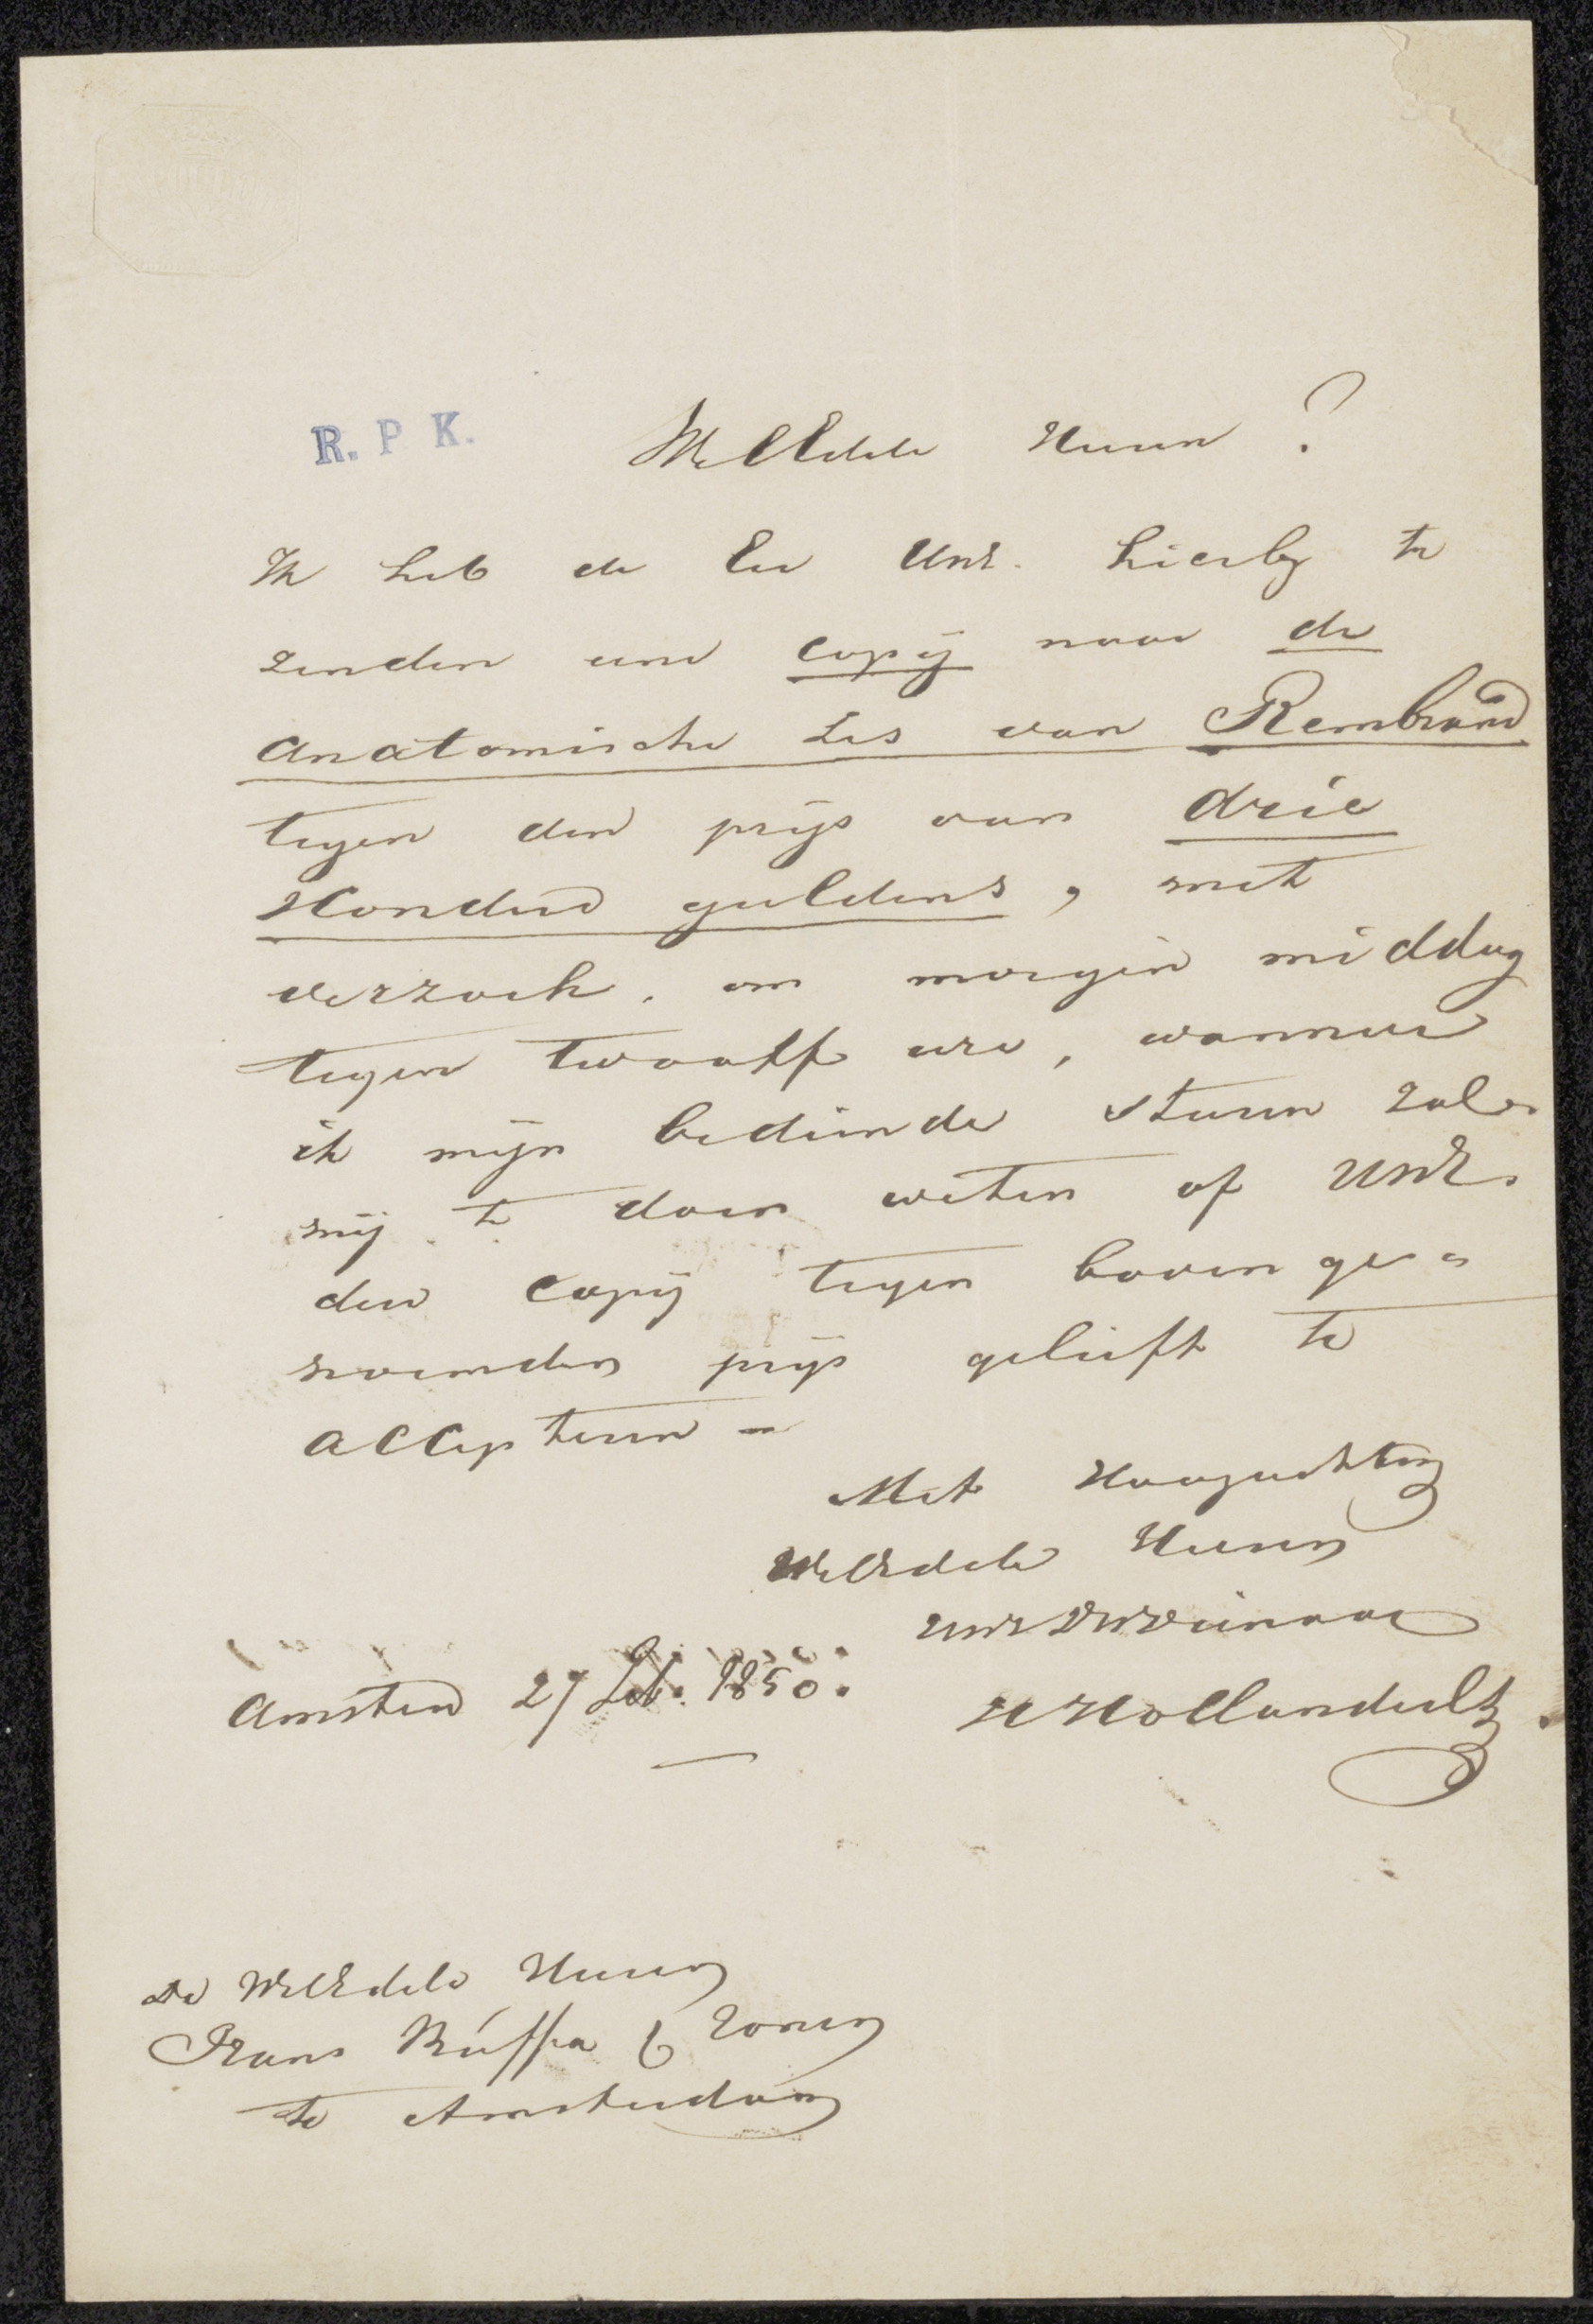 R. P K.
WelEdele Heeren ?
Ik heb de Eer UwE. hierby te
zenden eene copij naar de
Anatomische Les van Rembrand
tegen den prijs van drie
Honderd guldens, met
verzoek, om morgen middag
tegen twaalf ure, wanneer
ik mijn bediende sturen zal
mij te doen weten of UwE.
dese copij tegen bovenge=
noemden prijs gelieft te
accepteeren =
Met Hoogachting
WelEdele Heeren
UwE DWDienaar
Amsterd 27 Feb. 1850.
H Hollander
De WelEdele Heeren
Frans Buffa & Zonen
te Amsterdam